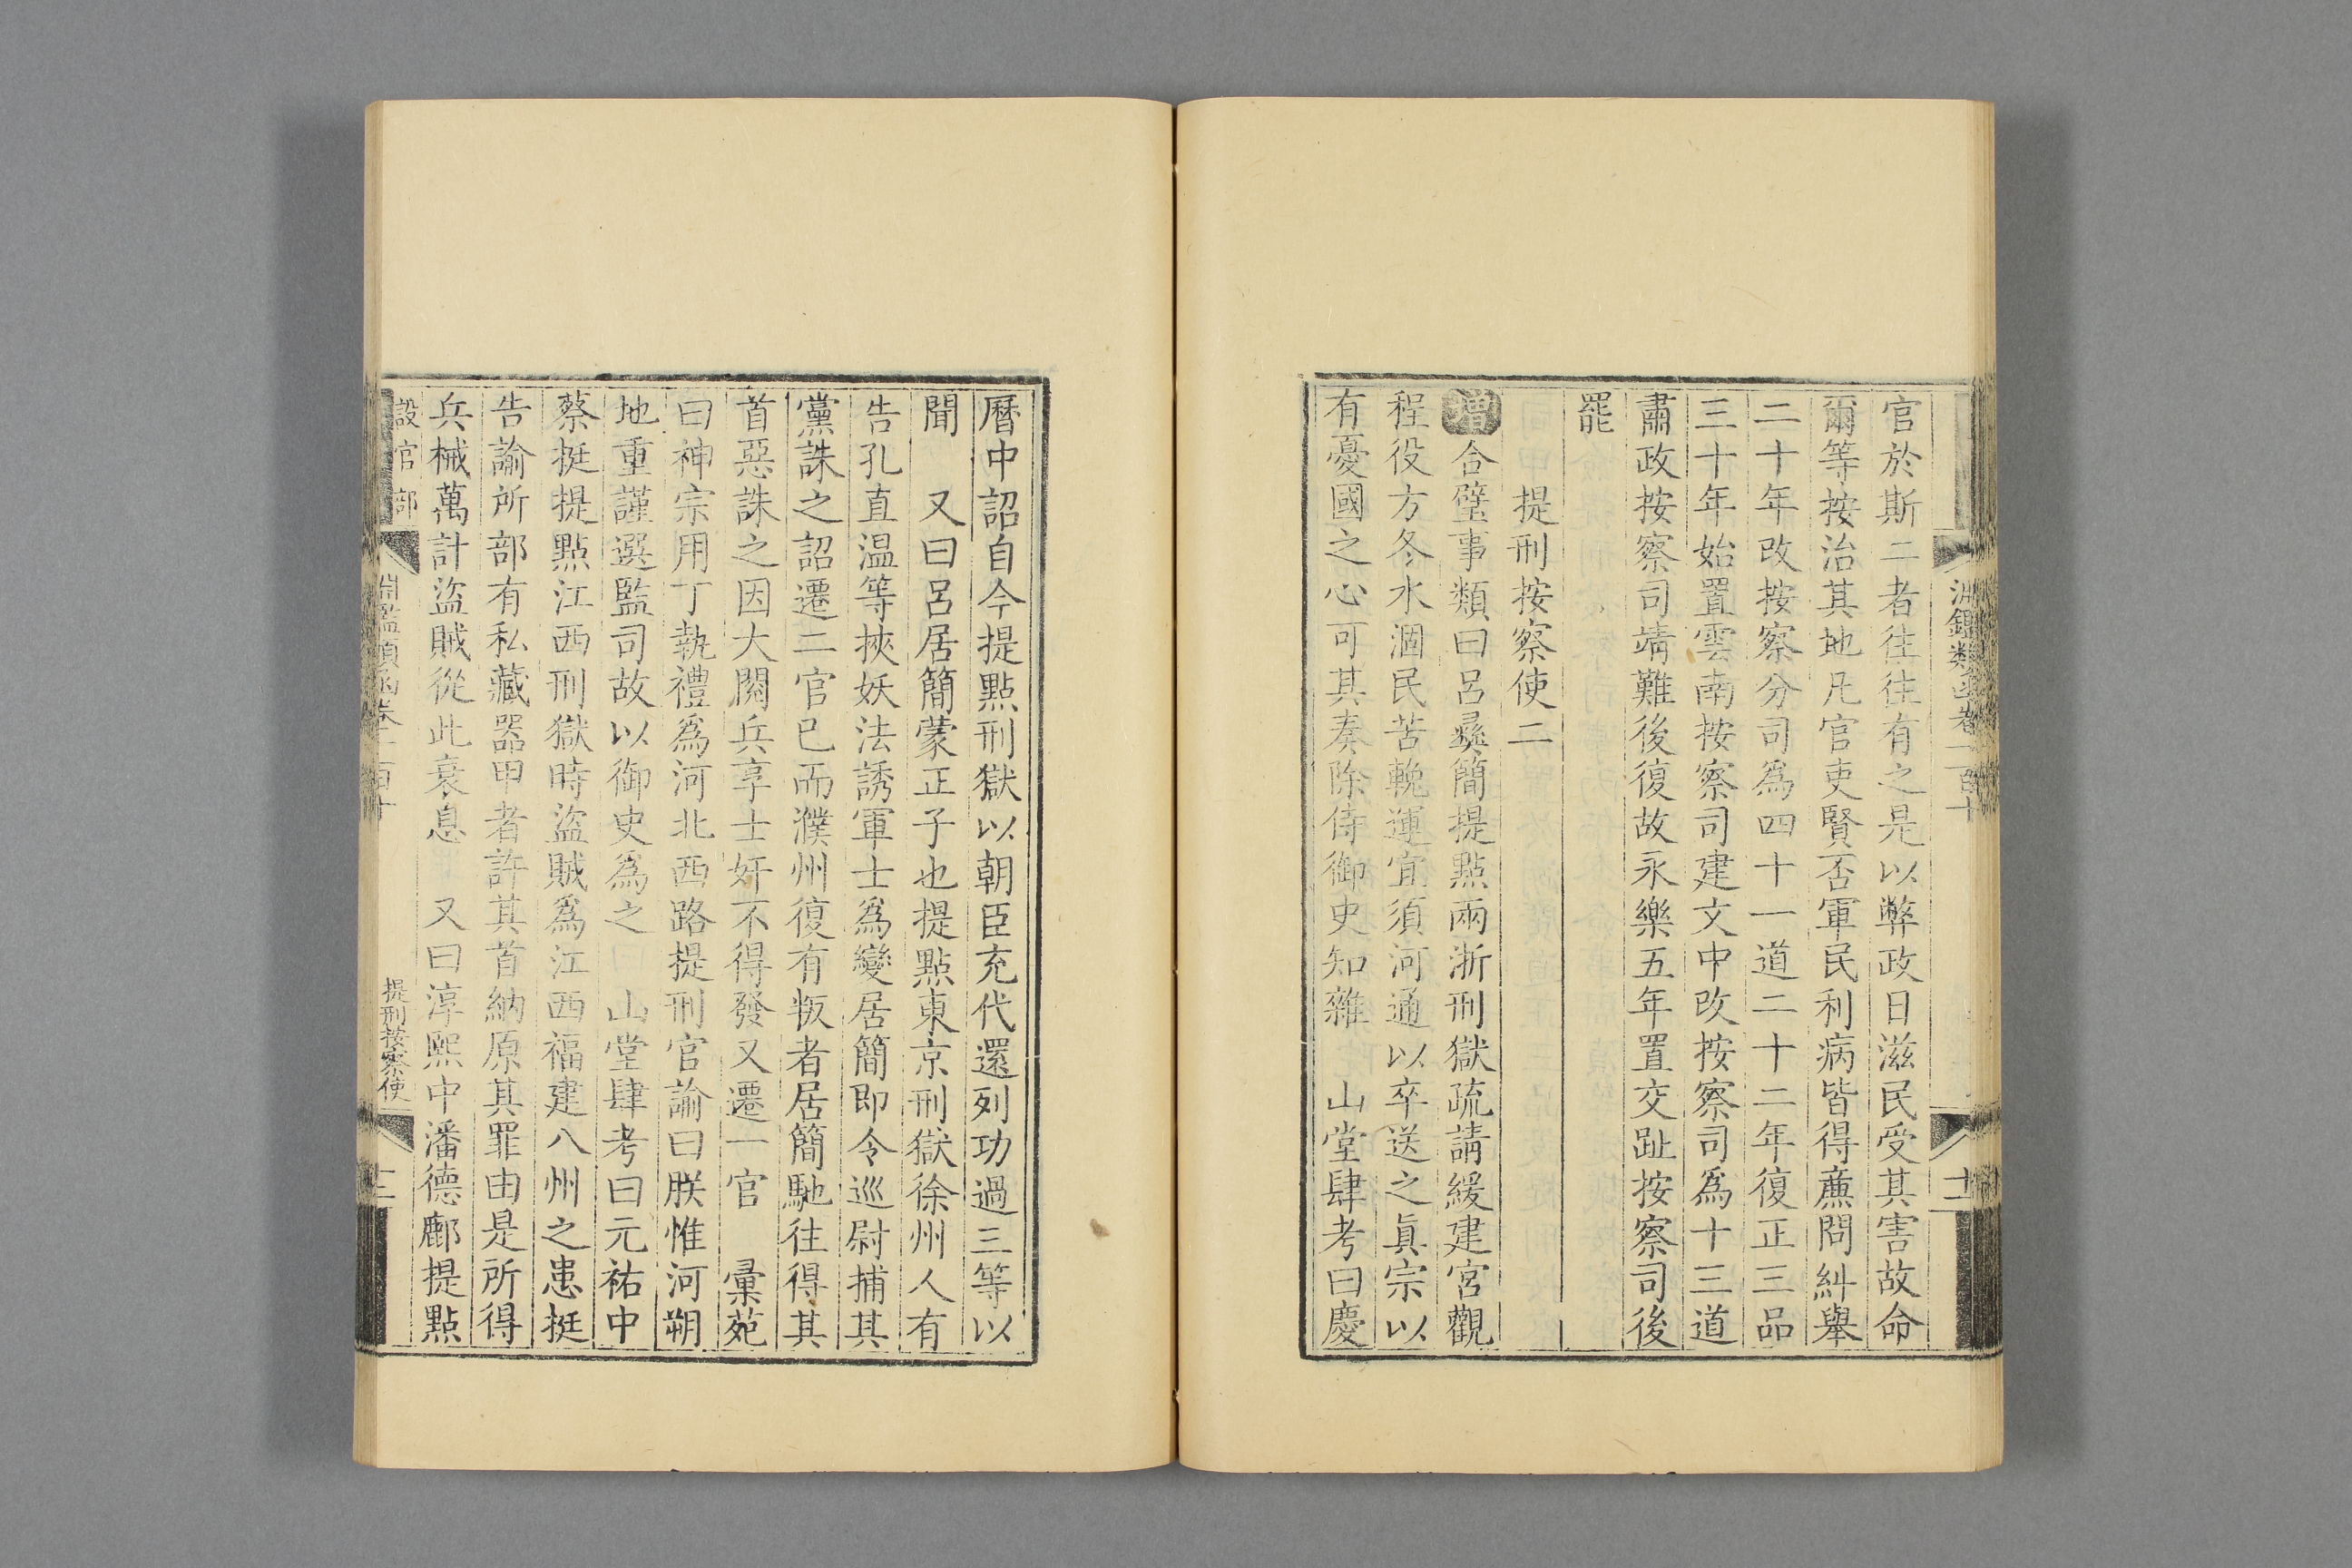 淵鑑類函卷一百十
十二
官於斯二者往往有之是以弊政日滋民受其害故命
爾等按治其地凡官吏賢否軍民利病皆得廉問糾舉
二十年改按察分司爲四十一道二十二年復正三品
三十年始置雲南按察司建文中改按察司爲十三道
肅政按察司靖難後復故永樂五年置交趾按察司後
罷
提刑按察使二
增合璧事類曰呂彝簡提點兩浙刑獄疏請緩建宮觀
程役方冬水涸民苦輓運宜須河通以卒送之眞宗以
有憂國之心可其奏除侍御史知雜　山堂肆考曰慶
曆中詔自今提點刑獄以朝臣充代還列功過三等以
聞　又曰呂居簡蒙正子也提點東京刑獄徐州人有
告孔直温等挾妖法誘軍士爲變居簡即令巡尉捕其
黨誅之詔遷二官已而濮州復有叛者居簡馳往得其
首惡誅之因大閱兵享士奸不得發又遷一官　彙苑
曰神宗用丁執禮爲河北西路提刑官諭曰朕惟河朔
地重謹選監司故以御史爲之　山堂肆考曰元祐中
蔡挺提點江西刑獄時盜賊爲江西福建八州之患挺
告諭所部有私藏器甲者許其首納原其罪由是所得
兵械萬計盜賊從此衰息　又曰淳熙中潘德鄜提點
設官部
淵鑑類函卷一百十
提刑按察使
十二